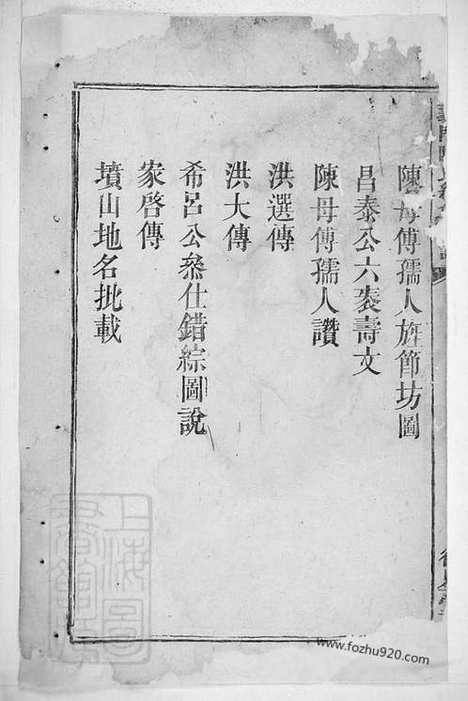 陳母傅孺人旌節坊圖
昌泰公六袠壽文
陳母傅孺人讚
洪選傳
洪大傳
希呂公叅仕錯綜圖說
家啓傳
墳山地名批載
www.fozhu920.com